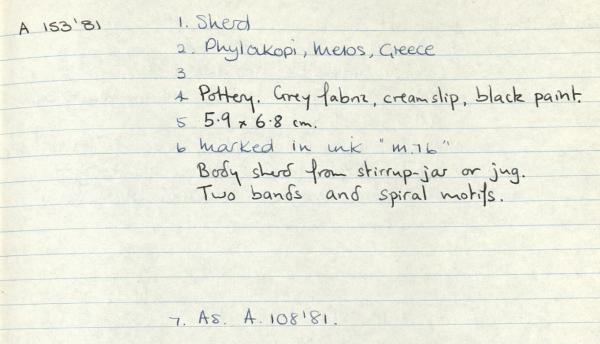 A 153'81
1. Sherd
2. Phylakopi, Melos, Greece
3
4 Pottery. Grey fabric, cream slip, black paint.
5 5.9 x 6.8 cm.
6 Marked in ink "M.76"
Body sherd from stirrup-jar or jug.
Two bands and spiral motifs.
7. As. A. 108'81.